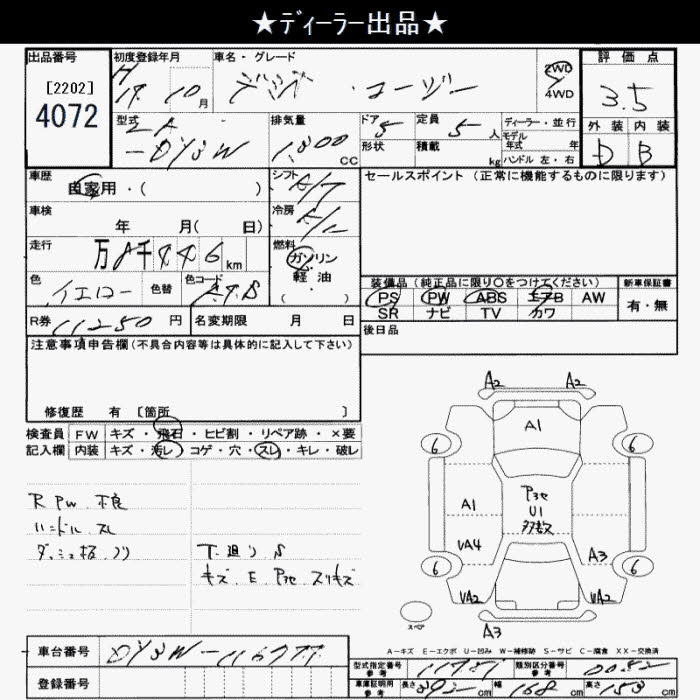 ★ディーラー出品★
出品番号 初度登録年月 車名・グレード 2WD 評価点
[2202] H 17年 10月 デミオ コージー 4WD 3.5
4072 型式 排気量 ドア 定員 ディーラー・並行 外装 内装
-DY3W 1,300 CC 5 5人 モデル 年式 年 D B
形状 積載 kg ハンドル 左・右
車歴 自家用・( ) シフト A/T セールスポイント (正常に機能するものに限ります)
車検 年 月( 日) 冷房 A/C
走行 万8千446km 燃料 ガソリン
軽油
( )
色 イエロー 色替 色コード 装備品(純正品に限り○をつけてください) 新車保証書
PS PW ABS エアB AW 有・無
SR ナビ TV カワ
R券 11250円 名変期限 月 日 後日品
注意事項申告欄(不具合内容等は具体的に記入して下さい)
修復歴 有 [箇所 ]
A2 A2
検査員 FW キズ・飛石・ヒビ割・リペア跡・×要
A1
記入欄 内装 キズ・汚レ・コゲ・穴・スレ・キレ・破レ
6 6
R PW 不良
A1
U1
多数
ハンドル スレ
VA4 A3
T.廻り S
キズ E スリキズ
6 6
VA2 VA2
スペア
A3
A-キズ E-エクボ U-凹み W-補修跡 S-サビ C-腐食 XX-交換済
車台番号 DY3W-
型式指定番号 参考 類別区分番号 参考
登録番号
車庫証明用 参考 長さ 392cm 幅 168cm 高さ 153cm